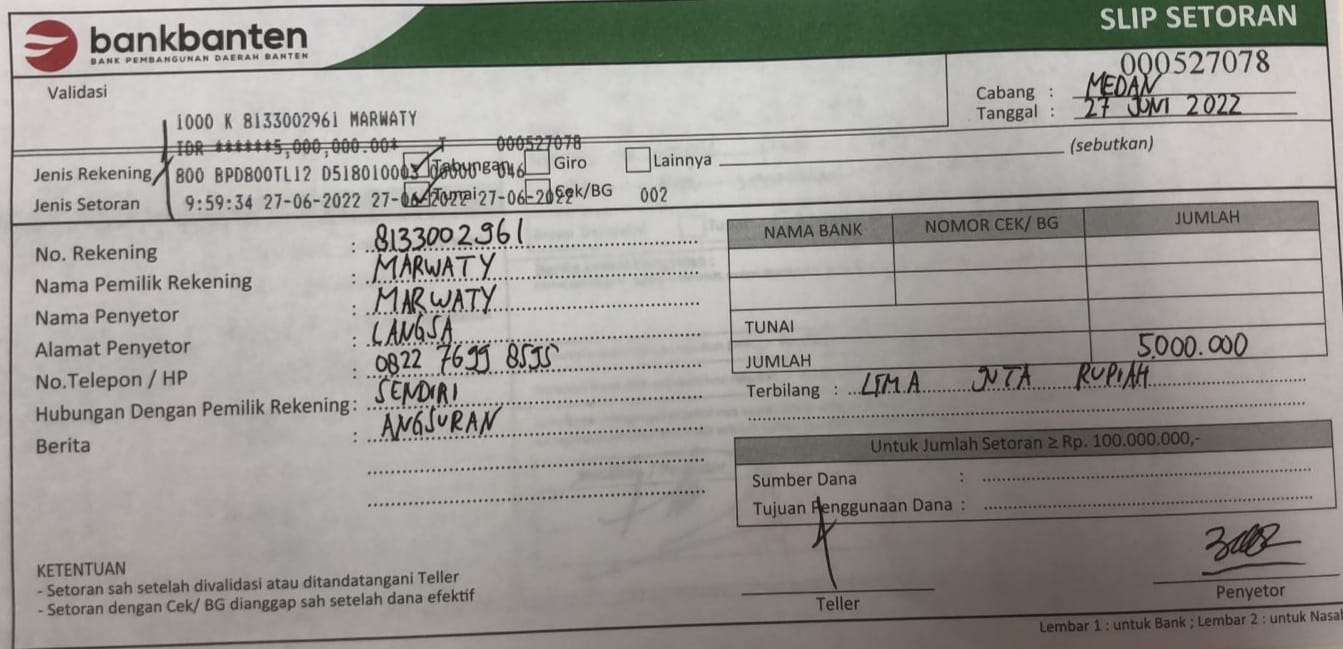 bankbanten
BANK PEMBANGUNAN DAERAH BANTEN
SLIP SETORAN
000527078
Validasi
Cabang : MEDAN
Tanggal : 27 JUNI 2022
1000 K 8133002961 MARWATY
IDR ******5,000,000.00* 000527078
Jenis Rekening 800 BPD800TL12 D518010003 00000 046 Tabungan Giro Lainnya (sebutkan)
Jenis Setoran 9:59:34 27-06-2022 27-06-2022 27-06-2022 Tunai Cek/BG 002
No. Rekening : 8133002961
Nama Pemilik Rekening : MARWATY
Nama Penyetor : MARWATY
Alamat Penyetor : LANGSA
No.Telepon / HP : 0822 7699 8595
Hubungan Dengan Pemilik Rekening: SENDIRI
Berita : ANGSURAN
NAMA BANK NOMOR CEK/ BG JUMLAH
TUNAI
JUMLAH 5.000.000
Terbilang : LIMA JUTA RUPIAH
Untuk Jumlah Setoran ≥ Rp. 100.000.000,-
Sumber Dana :
Tujuan Penggunaan Dana :
KETENTUAN
- Setoran sah setelah divalidasi atau ditandatangani Teller
- Setoran dengan Cek/ BG dianggap sah setelah dana efektif
Teller
Penyetor
Lembar 1 : untuk Bank ; Lembar 2 : untuk Nasab